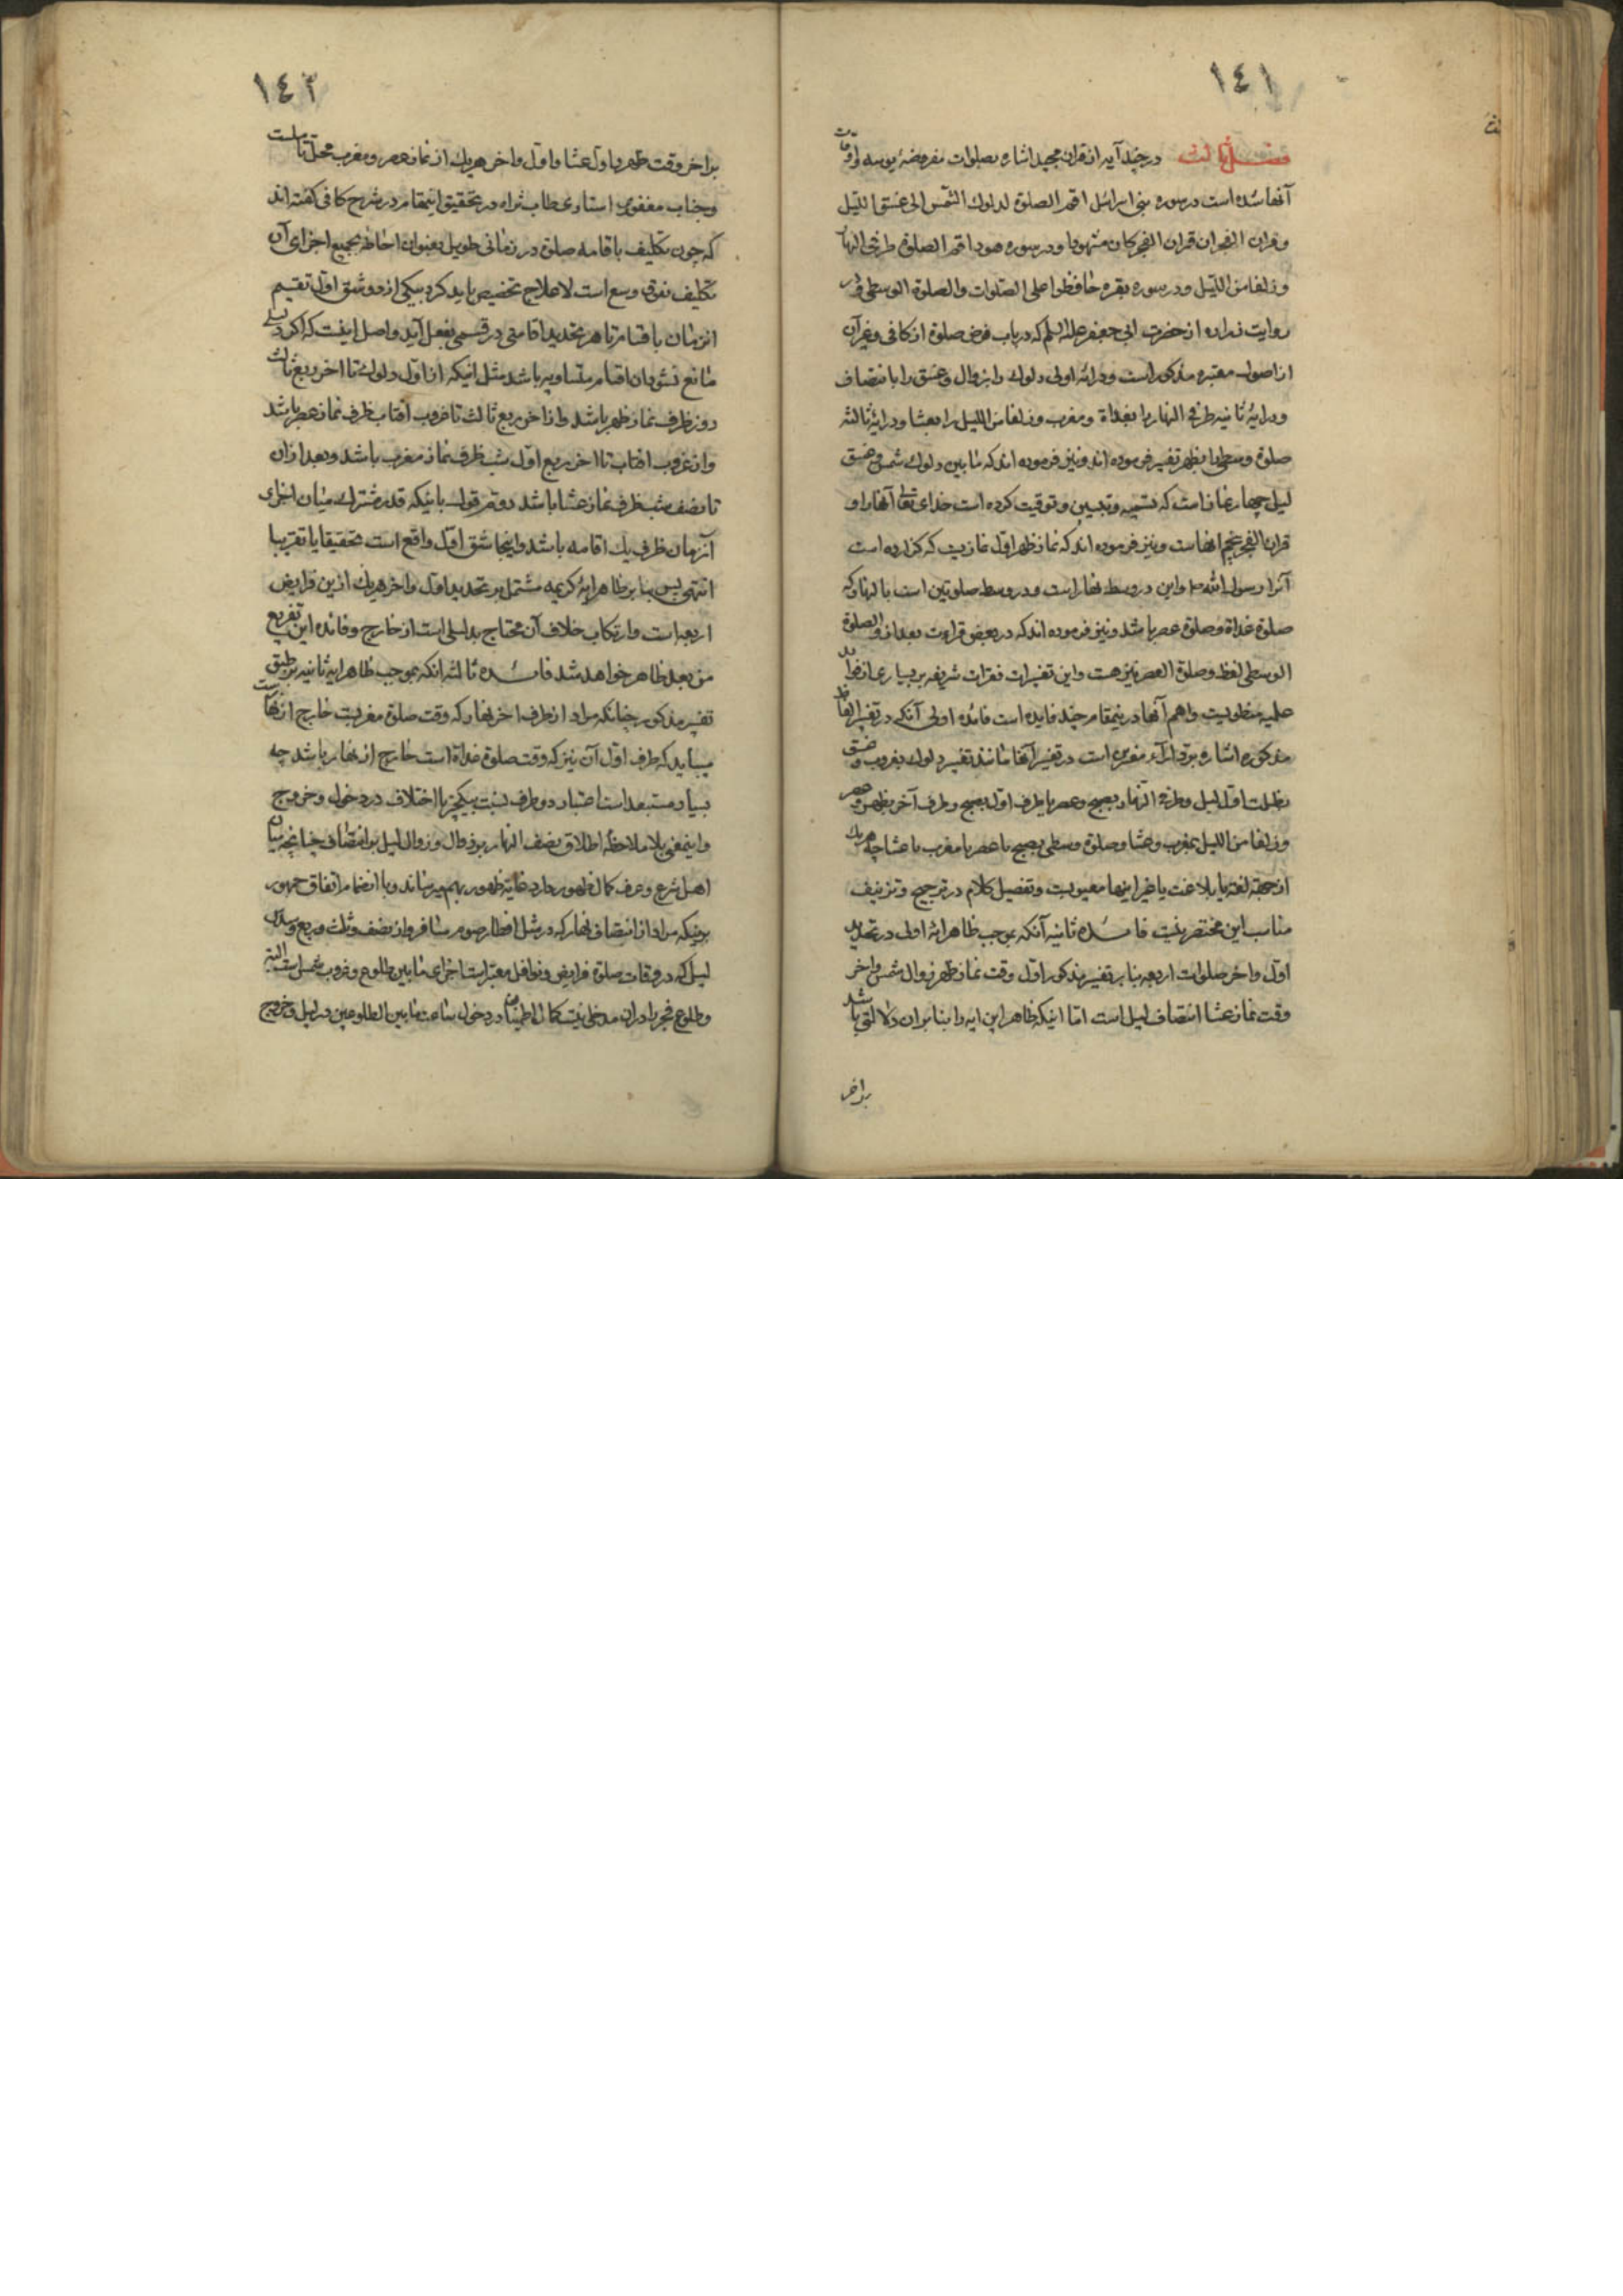 ١٤١
فصل ثالث در چند آیه از قران مجید اشاره بصلوات مفروضهٔ یومیه و اوقات
آنها شده است در سوره بنی اسرائیل اقم الصلوة لدلوك الشمس الی غسق اللیل
و قران الفجر ان قران الفجر کان مشهودا و در سوره هود اقم الصلوة طرفی النهار
و زلفا من اللیل و در سوره بقره حافظوا علی الصلوات والصلوة الوسطی و در
روایت زراره از حضرت ابی جعفر علیه السلم که در باب فرض صلوة از کافی و غیر آن
از اصول معتبره مذکور است در ایه اولی دلوك را بزوال و غسق را بانتصاف
و در ایهٔ ثانیه طرفی النهار را بغداة و مغرب و زلفا من اللیل را بعشا و در ایهٔ ثالثه
صلوة وسطی را بظهر تفسیر فرموده اند و نیز فرموده اند که مابین دلوك شمس و غسق
لیل چهار نماز است که تسمیه و تبیین و توقیت کرده است خدای تعالی آنها را و
قران الفجر پنجم انهاست و نیز فرموده اند که نماز ظهر اول نمازیست که گزارده است
آنرا رسول الله ص و این در وسط نهار است و در وسط صلوتین است بالنهار که
صلوة غداة و صلوة عصر باشد و نیز فرموده اند که در بعض قراءت بعد از و الصلوة
الوسطی لفظ و صلوة العصر نیز هست و این تفسیرات فقرات شریفه بر بسیاری از فواید
علمیه منطویست و اهم آنها در ینمقام چند فایده است فائده اولی آنکه در تفسیر الفاظ
مذکوره اشاره برد آراء مفسرین است در تفسیر آنها مانند تفسیر دلوك بغروب و غسق
بظلمت اول لیل و طرفی النهار بصبح و عصر یا طرف اول بصبح و طرف آخر بظهر و عصر
و زلفا من اللیل بمغرب و عشا و صلوة وسطی بصبح یا عصر یا مغرب یا عشا چه هر یك
از جهة لغة یا بلاغت یا غیر اینها معیوبست و تفصیل کلام در ترجیح و تزییف
مناسب این مختصر نیست فائده ثانیه آنکه بموجب ظاهر ایه اولی در تحدید
اول و اخر صلوات اربعه بنا بر تفسیر مذکور اول وقت نماز ظهر زوال شمس و اخر
وقت نماز عشا انتصاف لیل است اما اینکه ظاهر این ایه را بنا بران دلالتی باشد
بر اخر
١٤٢
بر اخر وقت ظهر یا اول عشا و اول و اخر هر یك از نماز عصر و مغرب محل تاملست
و جناب مغفوری استادی طاب ثراه در تحقیق اینمقام در شرح کافی گفته اند
که چون تکلیف باقامه صلوة در زمانی طویل بعنوان احاطه بجمیع اجزای آن
تکلیف فوق وسع است لاعلاج تخصیص باید کرد بیکی از دو شق اول تقسیم
انزمان باقسام تا هر تحدید اقامتی در قسمی بفعل آید و اصل اینست که اگر دلیلی
مانع نشود ان اقسام متساویه باشد مثل اینکه از اول دلوك تا اخر ربع ثالث
روز ظرف نماز ظهر باشد و از اخر ربع ثالث تا غروب آفتاب ظرف نماز عصر باشد
و از غروب افتاب تا اخر ربع اول شب ظرف نماز مغرب باشد و بعد ازان
تا نصف شب ظرف نماز عشا باشد دوم قول باینکه قدر مشترك میان اجزای
آنزمان ظرف یك اقامه باشد و اینجا شق اول واقع است تحقیقا یا تقریبا
انتهی پس بنا بر ظاهر ایهٔ کریمه مشتمل بر تحدید اول و اخر هر یك از ین فرایض
اربعه است و ارتکاب خلاف آن محتاج بدلیلی است از خارج و فائده این تفریع
من بعد ظاهر خواهد شد فائده ثالثه انکه بموجب ظاهر ایه ثانیه بر طبق
تفسیر مذکور چنانکه مراد از طرف اخر نهار که وقت صلوة مغربست خارج از نهارست
میباید که طرف اول آن نیز که وقت صلوة غداة است خارج از نهار باشد چه
بسیار مستبعد است اعتبار دو طرف نسبت بیکچیز با اختلاف در دخول و خروج
و اینمعنی بلا ملاحظهٔ اطلاق نصف النهار بر زوال و زوال لیل بر انتصاف چنانچه میان
اهل شرع و عرف کمال ظهور دارد غایة ظهور بهم میرساند و با انضمام اتفاق جمهور
برینکه مراد از انتصاف نهار که در مثل افطار صوم مسافر و از نصف و ثلث و ربع و سدس
لیل که در وقات صلوة فرایض و نوافل معتبر است اجزای مابین طلوع و غروب شمس است البته
و طلوع فجر را دران مدخلی نیست کمال اطمینان در دخول ساعت مابین الطلوعین در لیل و خروج